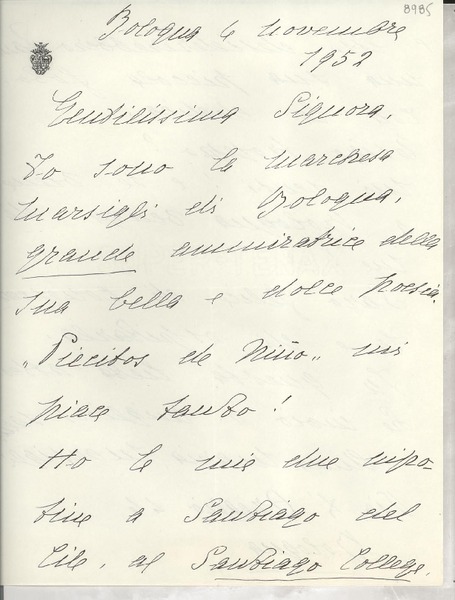 8985
Bologna 4 novembre
1952
Gentilissima Signora,
Io sono la marchesa
Marsigli di Bologna,
grande ammiratrice della
sua bella e dolce poesia.
„Piecitos de Niño„ mi
piace tanto!
Ho le mie due nipo-
tine a Santiago del
Cile, al Santiago College,